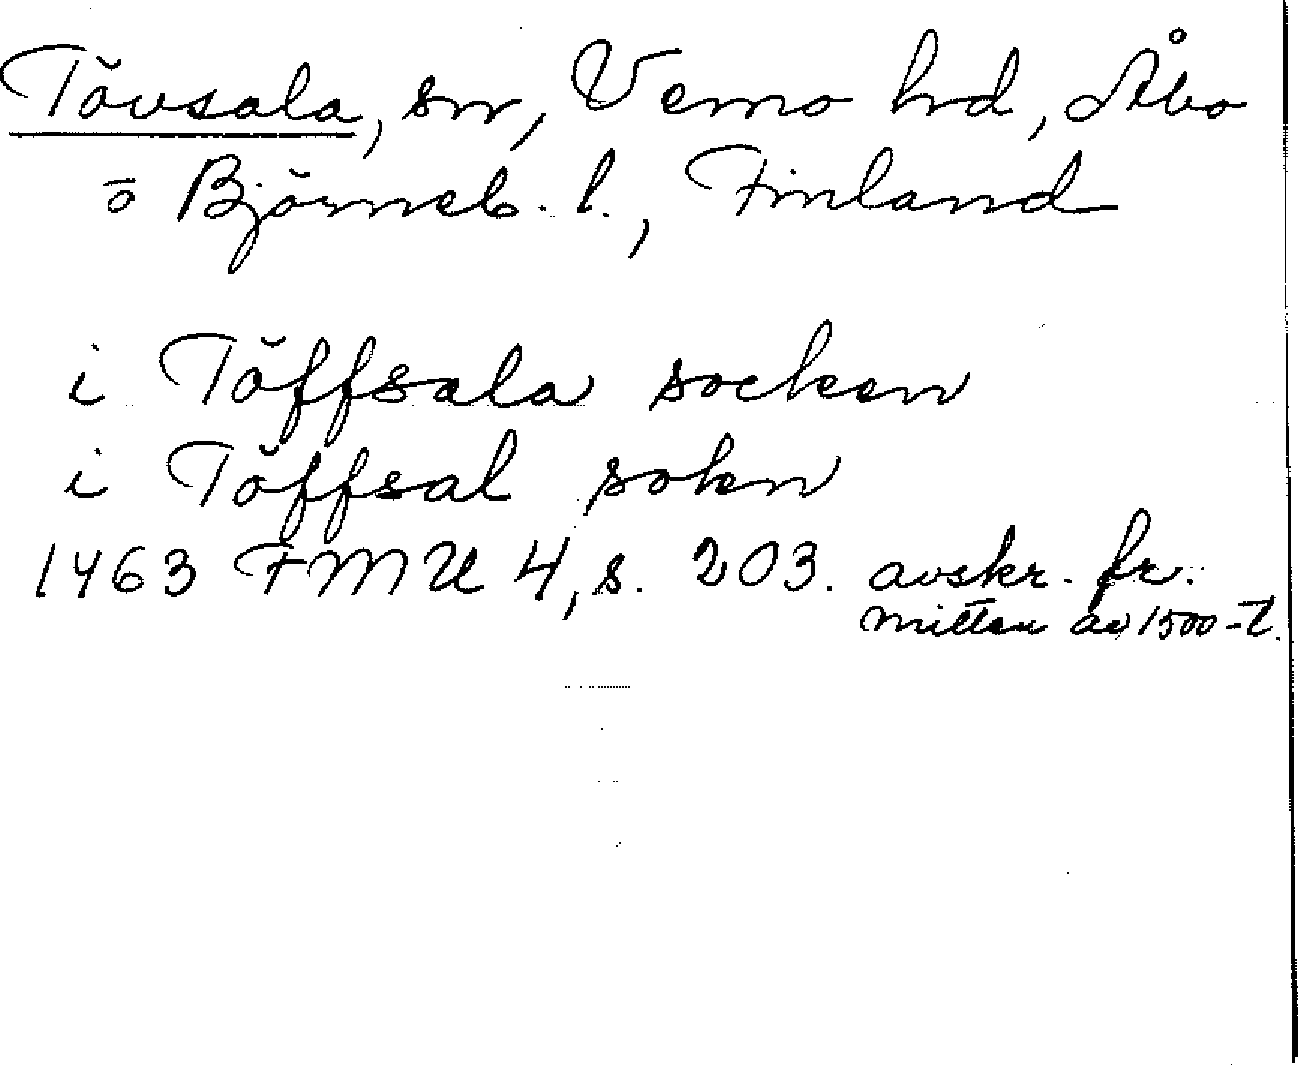 Tövsala, sn, Vemo hd, Åbo
o Björneb. l., Finland
i Töffsala socken
i Töffsal sokn
1463 FMU 4, s. 203. avskr. fr.
mitten av 1500-t.